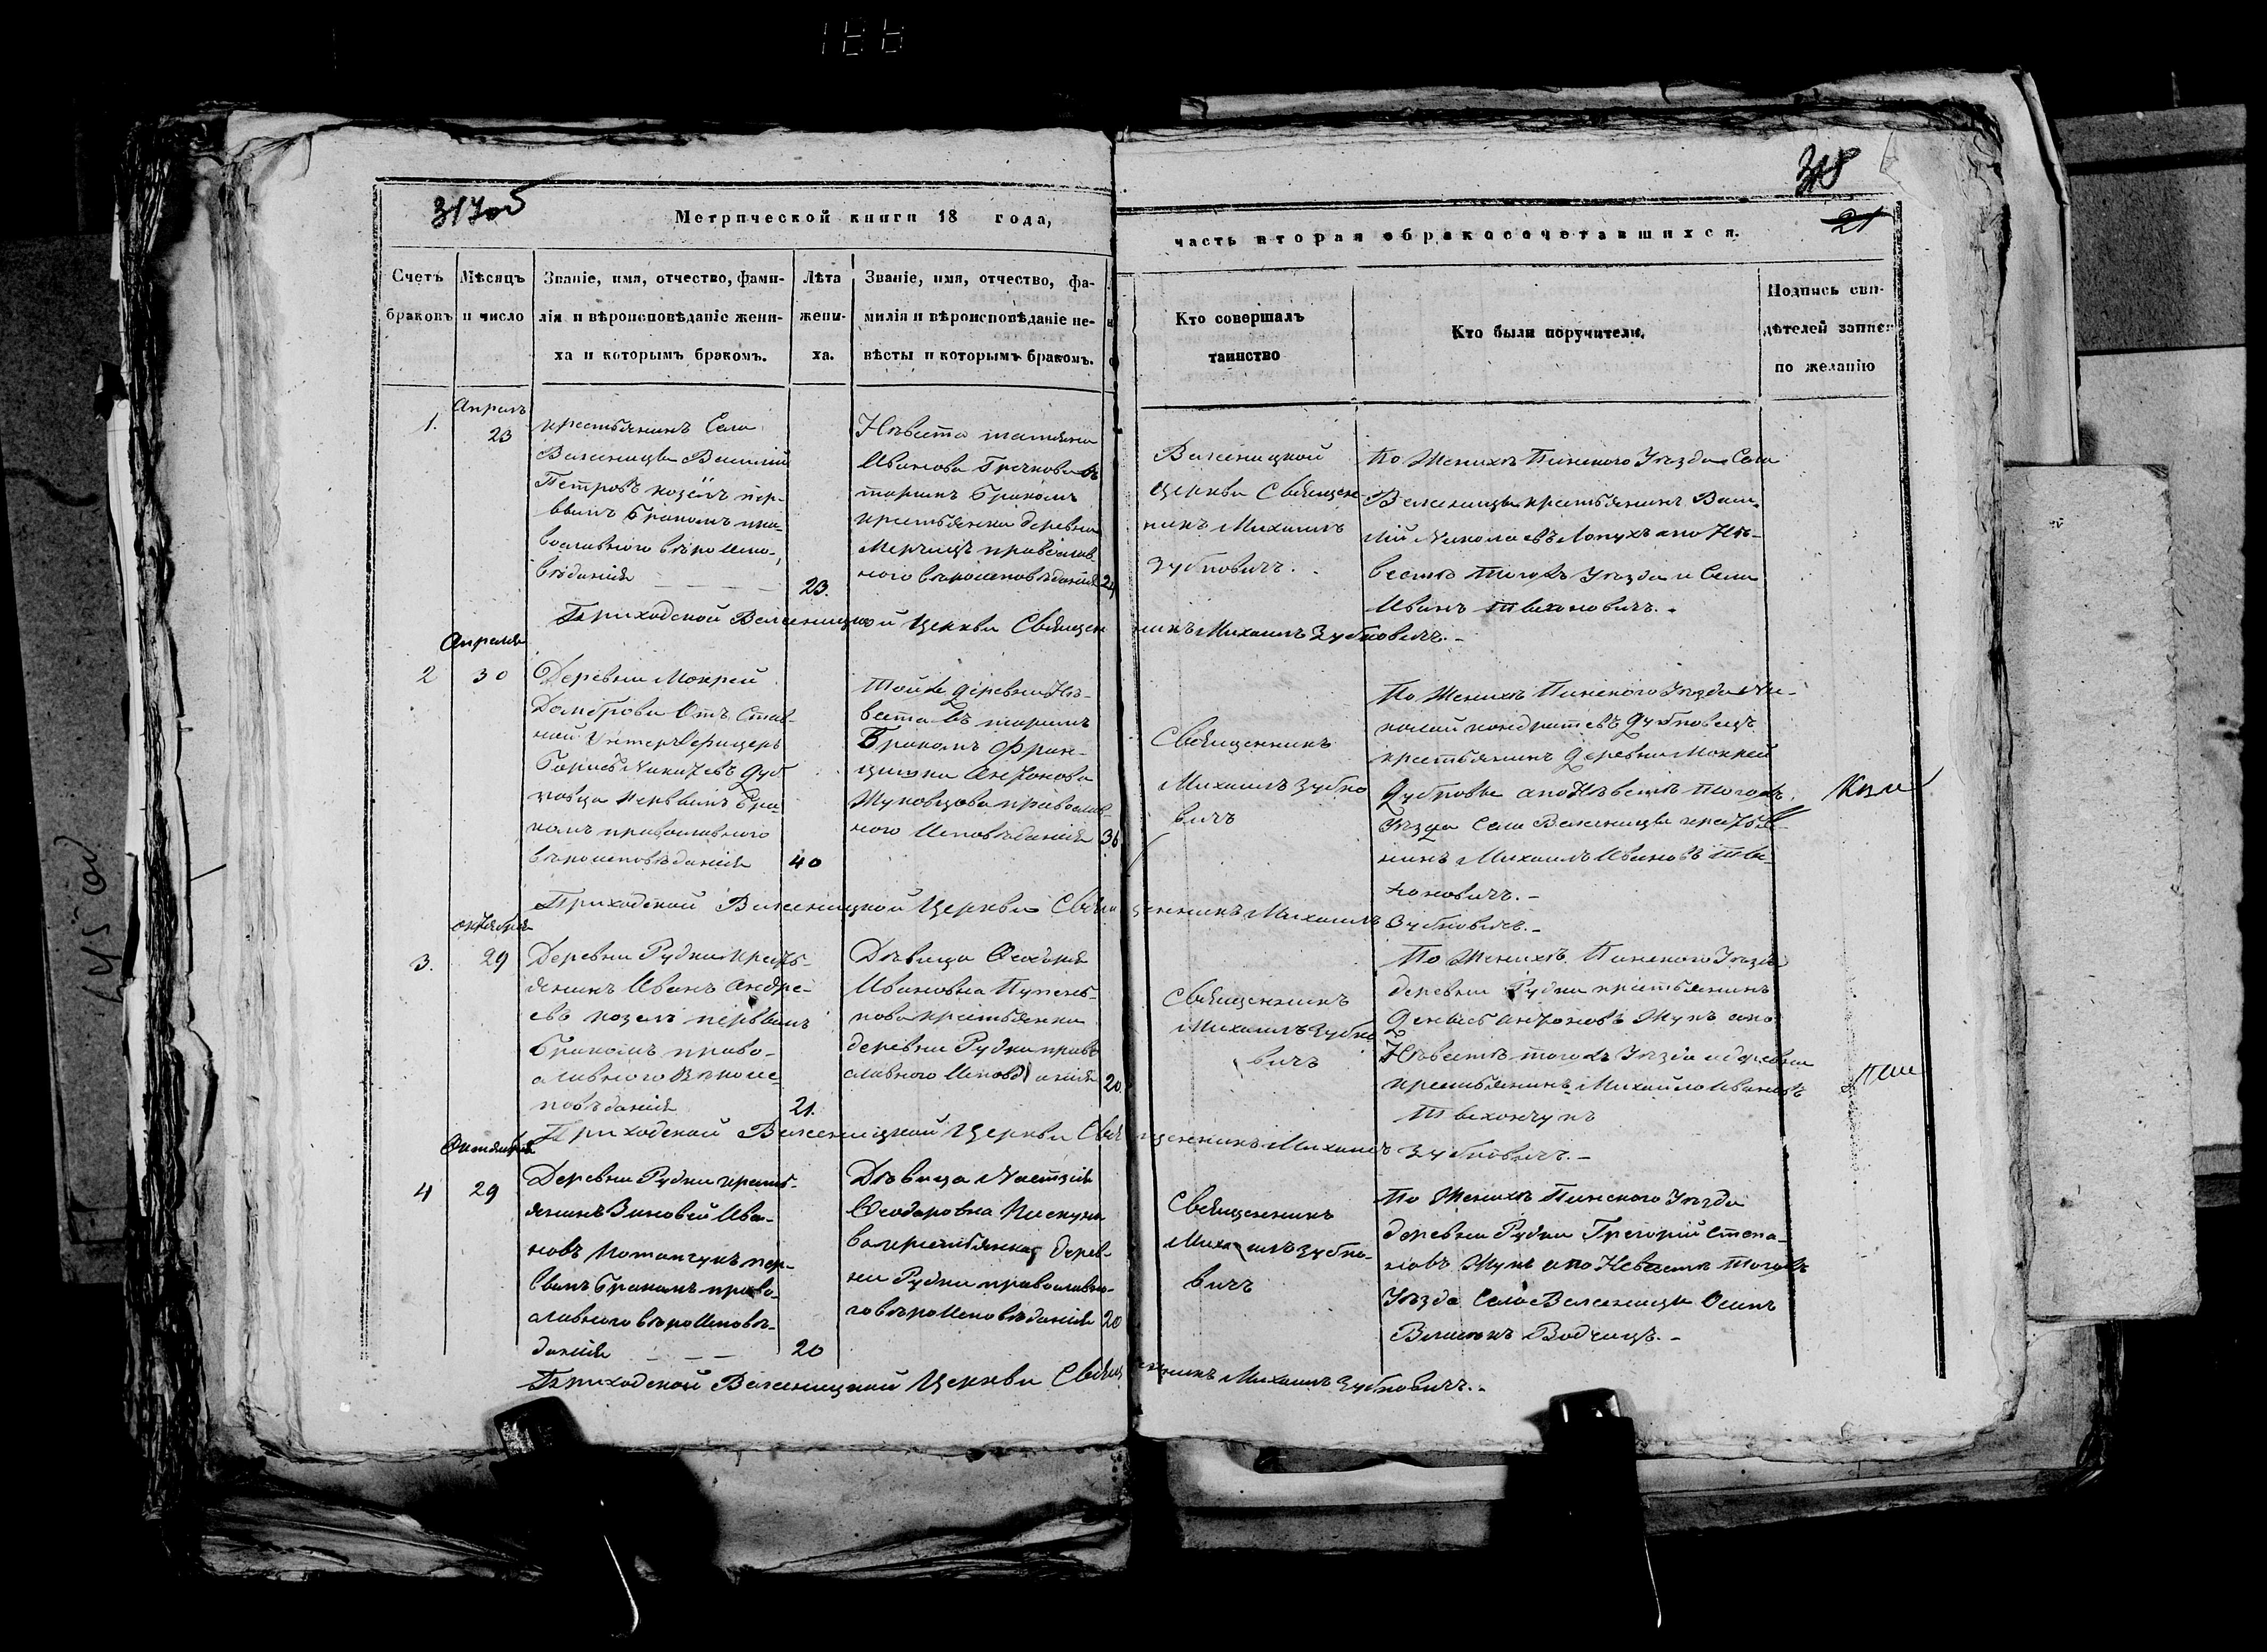 317об
Метрической книги 18 года,
Счетъ браковъ
Мѣсяцъ и число
Званіе, имя, отчество, фами-
лія и вѣроисповѣданіе жени-
ха и которымъ бракомъ.
Лѣта
жени-
ха.
Званіе, имя, отчество, фа-
милія и вѣроисповѣданіе не-
вѣсты и которымъ бракомъ.
318
21
часть вторая о бракосочетавшихся.
Кто совершалъ
таинство
Кто были поручители.
Подпись сви-
дѣтелей записи
по желанію
1.
Апрель
23
крестьянинъ Села
Василій
Петровъ козелъ пер-
ввымъ Бракомъ пра-
вославного вѣроиспо-
вѣданія
23.
Нѣвеста татіяна
Иванова
вторимъ Бракомъ
крестьянка деревни
православ
ного вѣроисповѣданія
24
церкви Священ
никъ Михаилъ
Зубковичъ.
По Женихѣ Пинского Уѣзда Села
крестьянинъ Васи-
лій Николаевъ Лопухъ а по Нѣ-
вестѣ тогожъ Уѣзда и Села
Иванъ
Приходской Церкви Священникъ Михаилъ Зубковичъ.-
2
Апреля
30
Деревни Мокрей
Домбровы Отъ Став-
ной Унтеръ Офицеръ
Борисъ Дуб
ковецъ перввымъ Бра-
комъ православного
вѣроисповѣданія
40
Тойже деревни Нѣ-
веста Вторимъ
Бракомъ Фран-
цишка Антонова
Жуковцова православ-
ного Исповѣданія
36
Священникъ
Михаилъ Зубко
вичъ
По Женихѣ Пинского Уѣзда Ни-
колай кондратевъ Дубковецъ
крестьянинъ Деревни Мокрей
Дубровы а по Нѣвестѣ тогожъ
Уѣзда Села крестья-
нинъ Михаилъ Ивановъ
Приходской Церкви Священникъ Михаилъ Зубковичъ.-
3.
октября
29
Деревни Рудки кресть-
янинъ Иванъ Андре-
евъ козелъ перввымъ
Бракомъ право-
славного Вѣроис-
повѣданія
21.
Дѣвица Феодора
Ивановна
крестьянка
деревни Рудки право
славного Исповѣданія
20.
Священникъ
Михаилъ Зубко
вичъ
По Женихѣ Пинского Уѣзда
деревни Рудки крестьянинъ
Денисъ Антоновъ Жукъ а по
Нѣвестѣ тогожъ Уѣзда и деревни
крестьянинъ Михайло Ивановъ
Приходской Церкви Священникъ Михаилъ Зубковичъ.-
4
Октября
29
Деревни Рудки кресть-
янинъ Зиновей Ива-
новъ пер-
ввымъ Бракомъ право-
славного вѣроисповѣ-
данія
20
Дѣвица Настазія
Феодоровна Пискуно
ва крестьянка дерев-
ни Рудки православно-
го вѣроисповѣданія
20
Священникъ
Михаилъ Зубко-
вичъ
По Женихѣ Пинского Уѣзда
деревни Рудки Григорій Степа-
новъ Жукъ а по Невестѣ тогожъ
Уѣзда Села Осипъ
Приходской Церкви Священникъ Михаилъ Зубковичъ.-